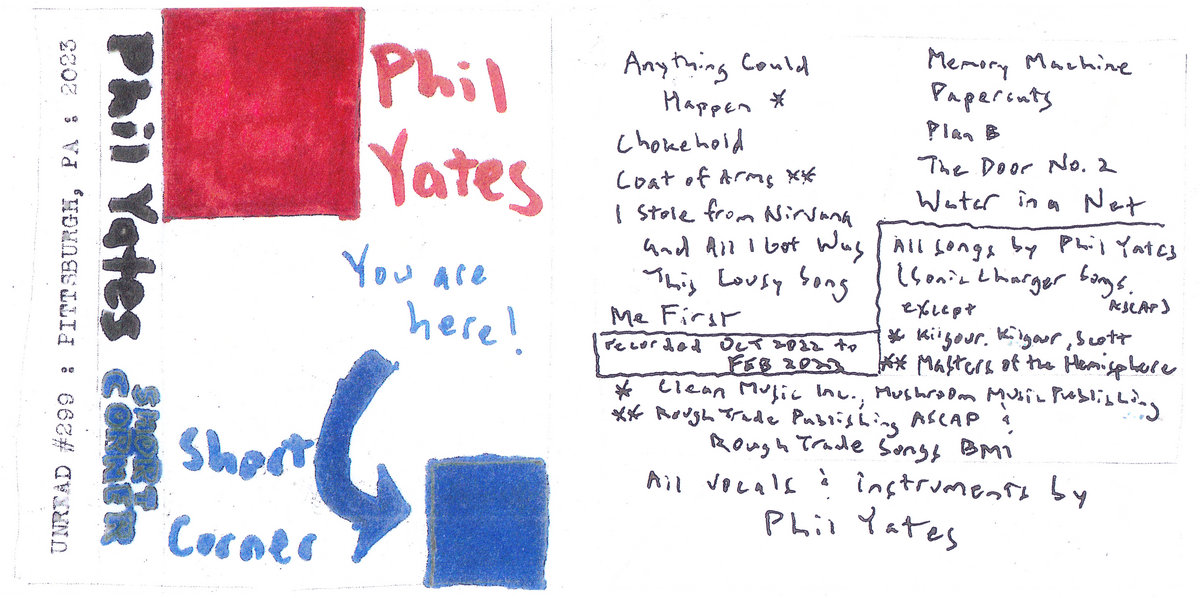 UNREAD #299 : PITTSBURGH, PA : 2023
Phil Yates
SHORT
CORNER
Phil
Yates
You are
here!
Short
Corner
Anything Could
Happen *
Chokehold
Coat of Arms **
I Stole from Nirvana
and All I Got Was
This Lousy Song
Me First
recorded OCT 2022 to
FEB 2022
Memory Machine
Papercuts
Plan B
The Door No. 2
Water in a Net
All songs by Phil Yates
(Sonic Charger Songs,
ASCAP)
except
* Kilgour, Kilgour, Scott
** Masters of the Hemisphere
* Clean Music Inc., Mushroom Music Publishing
** Rough Trade Publishing ASCAP &
Rough Trade Songs BMI
All vocals & instruments by
Phil Yates